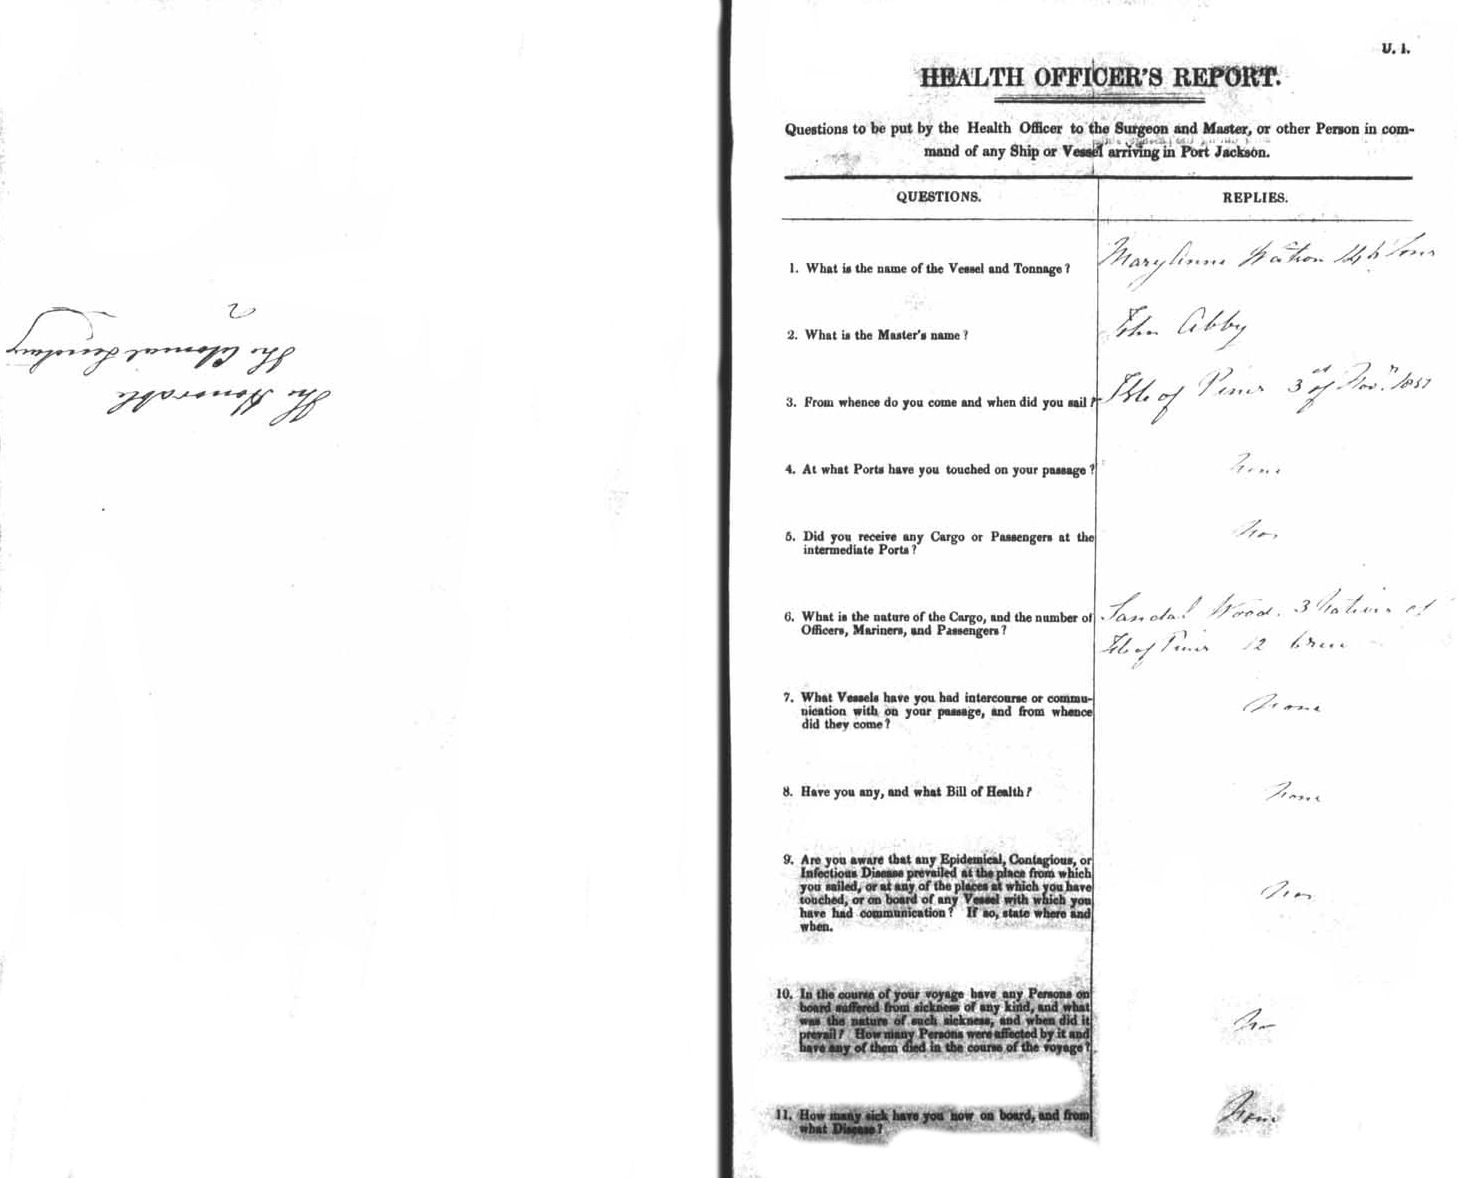 The Honorable
The Colonial Secretary
U. 1.
HEALTH OFFICER'S REPORT.
Questions to be put by the Health Officer to the Surgeon and Master, or other Person in com-
mand of any Ship or Vessel arriving in Port Jackson.
QUESTIONS.
REPLIES.
1. What is the name of the Vessel and Tonnage?
Mary Anne Watson 146 Tons
2. What is the Master's name?
John Abby
3. From whence do you come and when did you sail?
Isle of Pines 3 of Nov. 1857
4. At what Ports have you touched on your passage?
None
5. Did you receive any Cargo or Passengers at the
intermediate Ports?
No
6. What is the nature of the Cargo, and the number of
Officers, Mariners, and Passengers?
Sandal Wood. 3 Natives of
Isle of Pines 12 Crew
7. What Vessels have you had intercourse or commu-
nication with on your passage, and from whence
did they come?
None
8. Have you any, and what Bill of Health?
None
9. Are you aware that any Epidemical, Contagious, or
Infectious Disease prevailed at the place from which
you sailed, or at any of the places at which you have
touched, or on board of any Vessel with which you
have had communication? If so, state where and
when.
No
10. In the course of your voyage have any Persons on
board suffered from sickness of any kind, and what
was the nature of such sickness, and when did it
prevail? How many Persons were affected by it and
have any of them died in the course of the voyage?
No
11. How many sick have you now on board, and from
what Disease?
None